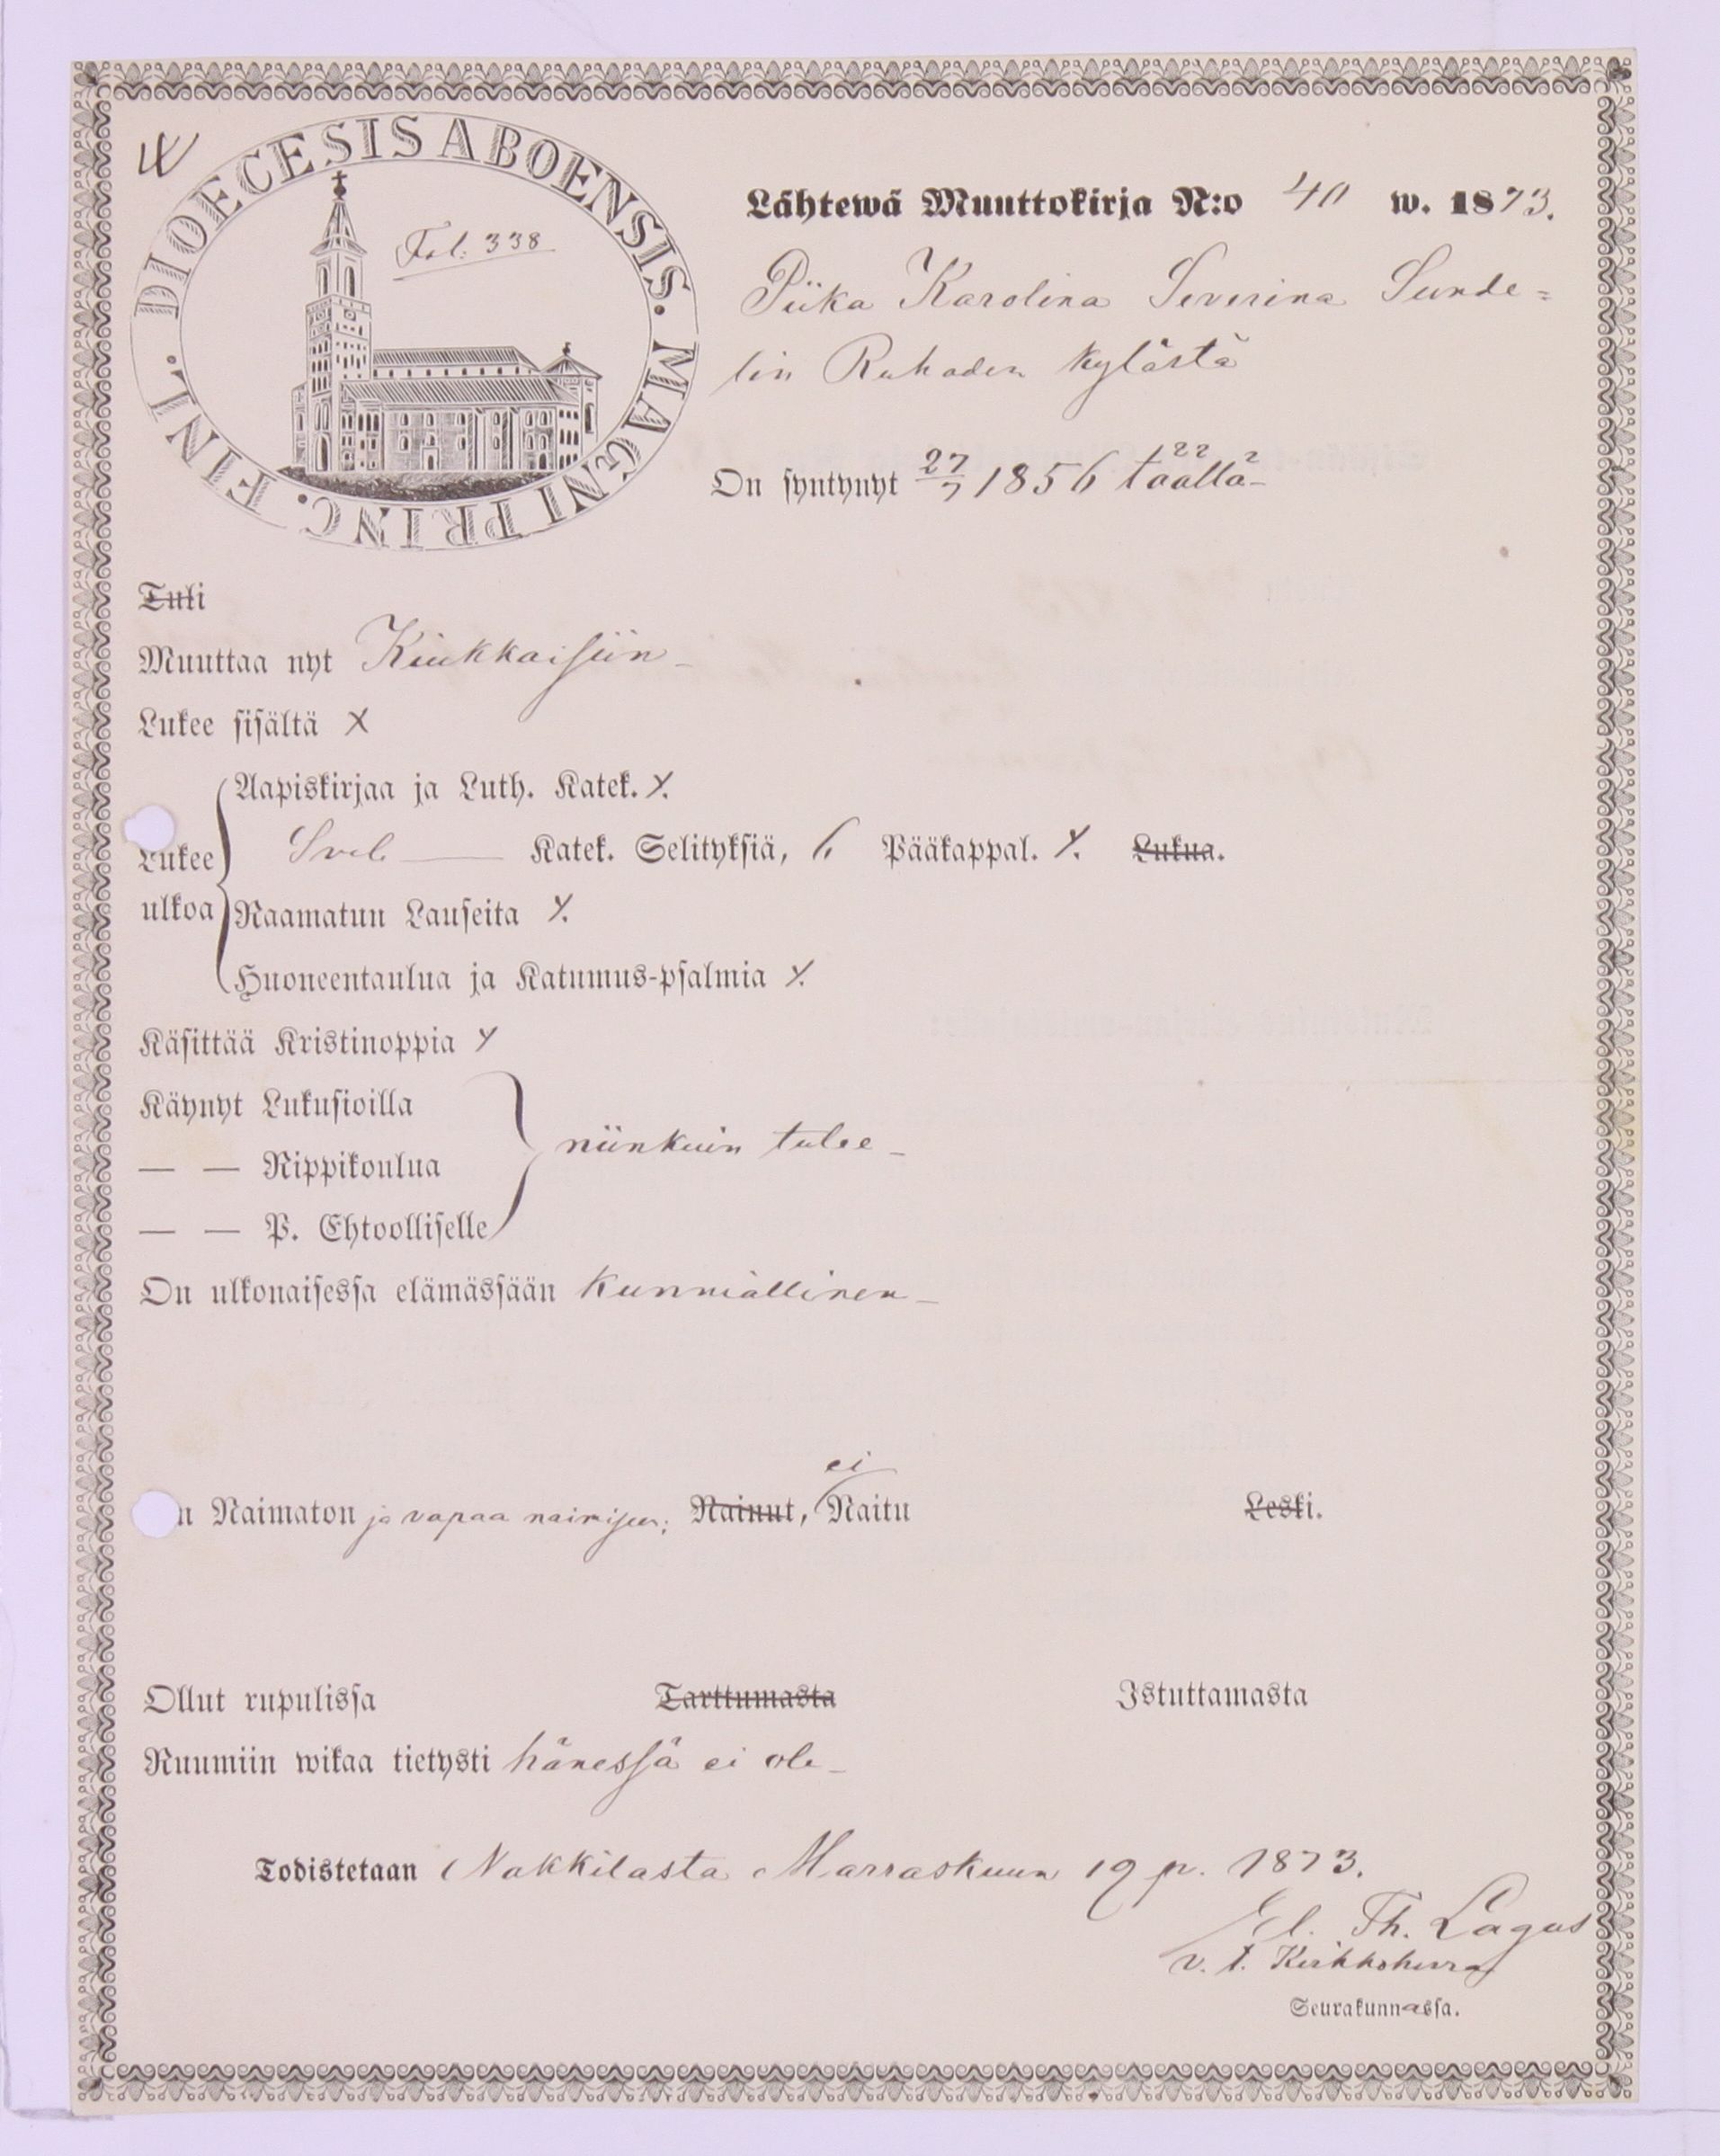 DIOECESIS ABOENSIS. MAGNI PRINC. FINL.
Fol. 338
Lähtewä Muuttokirja N:o 40 w. 1873.
Piika Karolina Severina Sunde=
lin Ruhaden kylästä
On syntynyt 27/7 1856 täällä
Tuli
Muuttaa nyt Kiukkaisiin
Lukee sisältä X
Aapiskirjaa ja Luth. Katek. X.
Lukee Sveb. — Katek. Selityksiä, 6 Pääkappal. X. Lukua.
ulkoa Raamatun Lauseita X.
Huoneentaulua ja Katumus-psalmia X.
Käsittää Kristinoppia X
Käynyt Lukusioilla
— — Rippikoulua niinkuin tulee
— — P. Ehtoolliselle
On ulkonaisessa elämässään kunniallinen
ei
n Naimaton ja vapaa naimiseen; Nainut, Naitu Leski.
Ollut rupulissa Tarttumasta Istuttamasta
Ruumiin wikaa tietysti hänessä ei ole
Todistetaan Nakkilasta Marraskuun 19 p. 1873.
El. Th. Lagus
v. t. Kirkkoherra
Seurakunnassa.